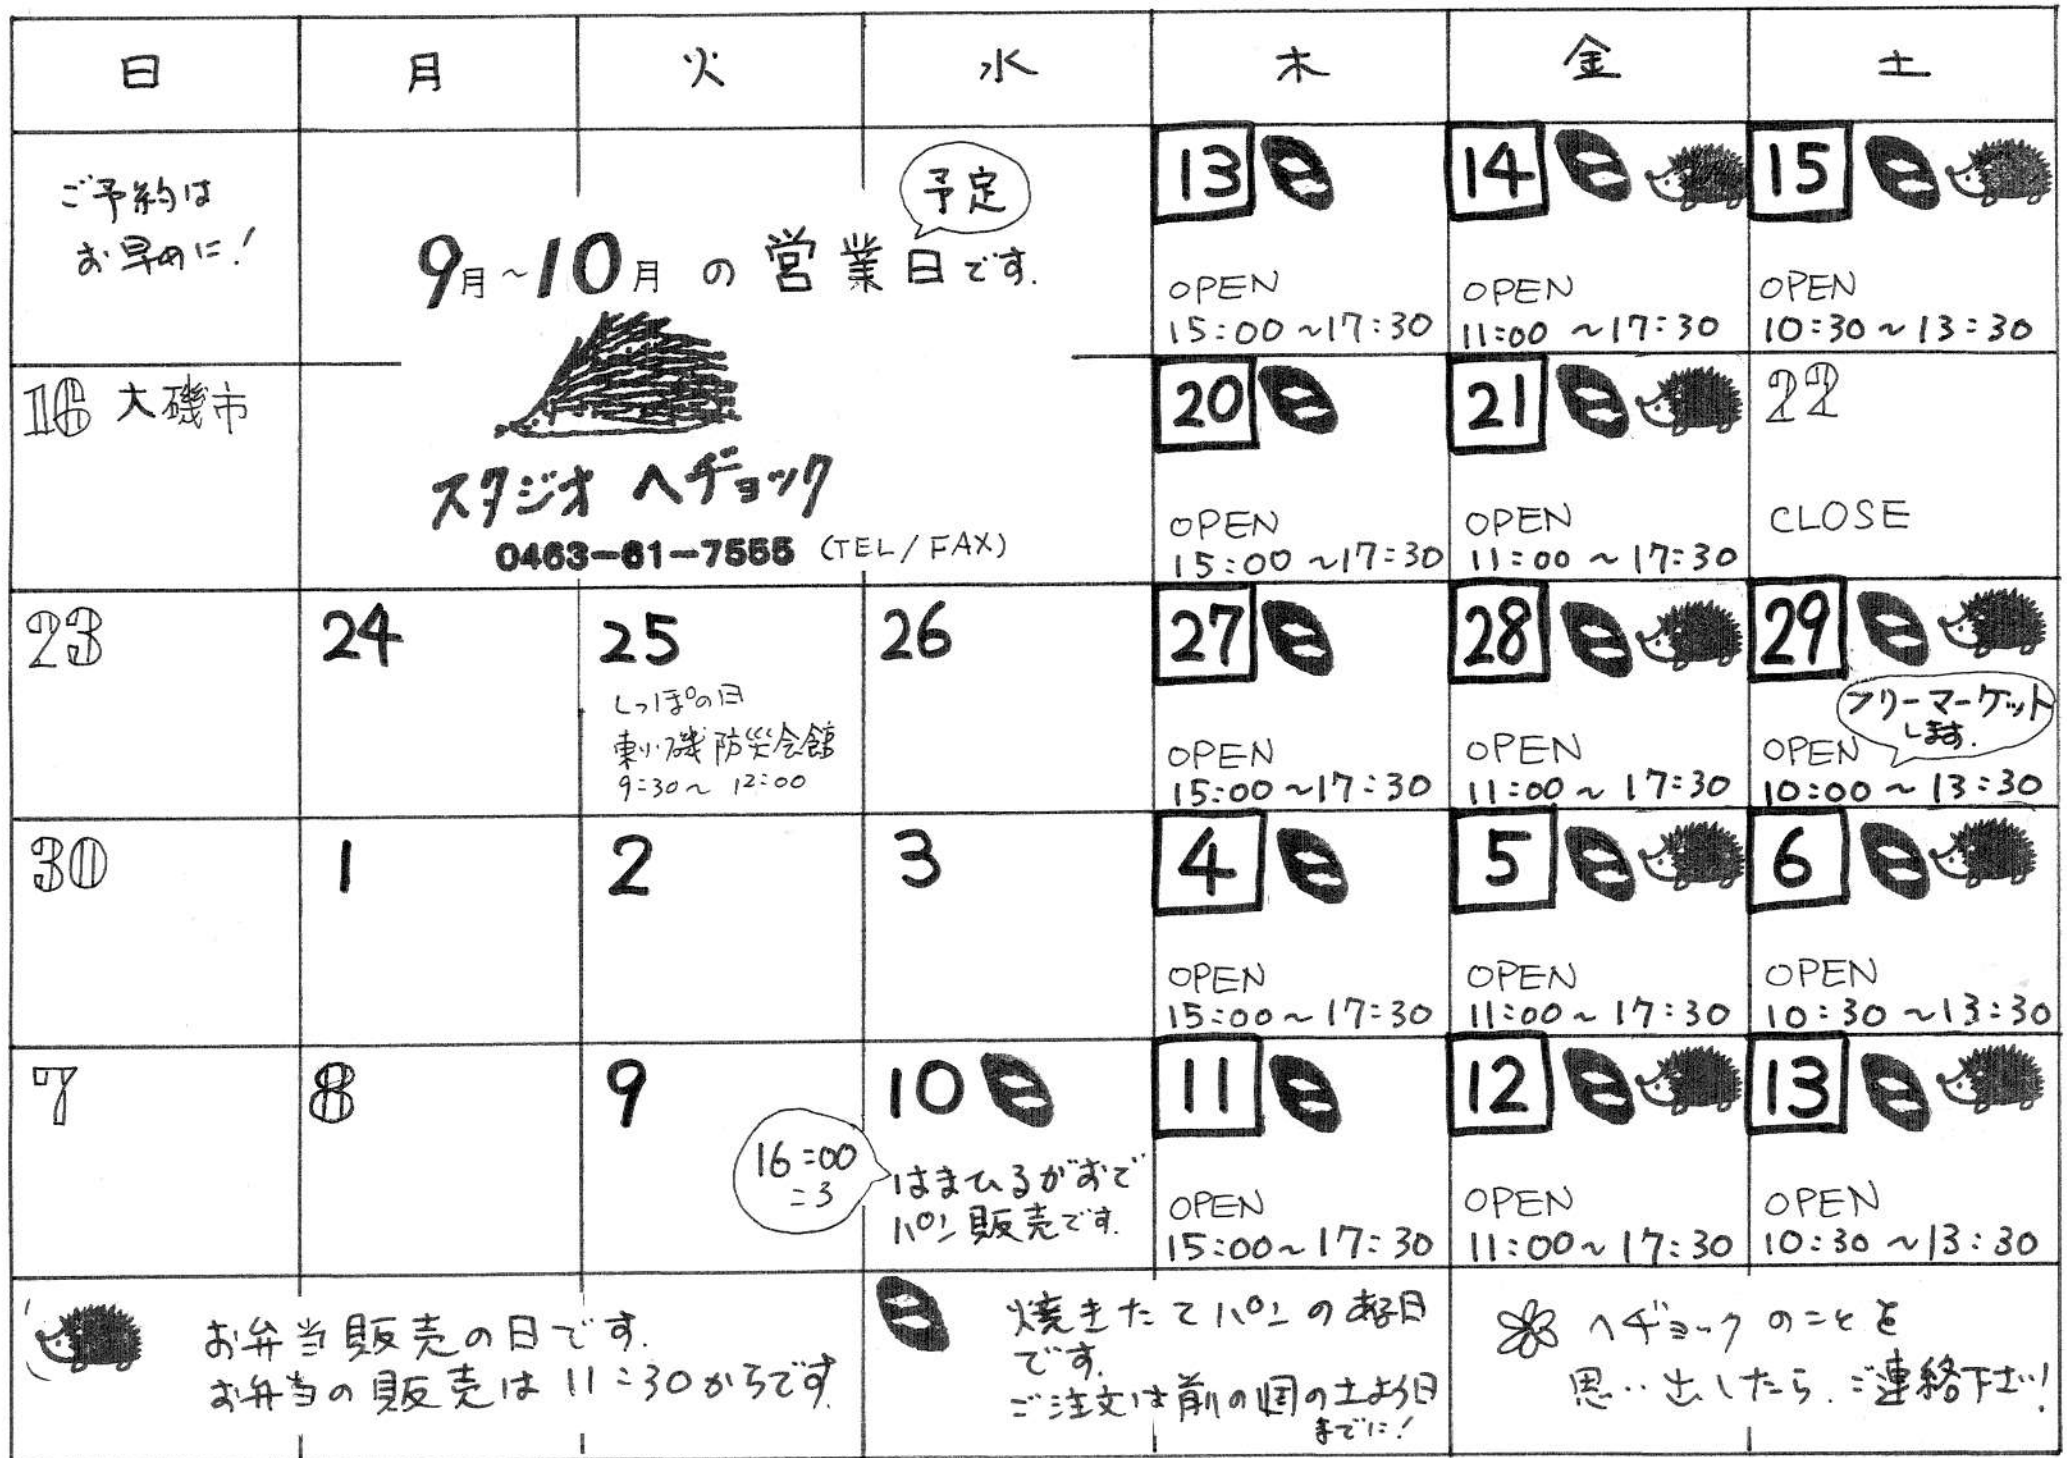 日 月 火 水 木 金 土
ご予約は
お早めに!
予定
9月~10月の営業日です.
スタジオ ヘヂョック
0463-61-7555 (TEL/FAX)
13
OPEN
15:00~17:30
14
OPEN
11:00~17:30
15
OPEN
10:30~13:30
16 大磯市
20
OPEN
15:00~17:30
21
OPEN
11:00~17:30
22
CLOSE
23
24
25
しっぽの日
東小磯防災会館
9:30~12:00
26
27
OPEN
15:00~17:30
28
OPEN
11:00~17:30
29
フリーマーケット
します.
OPEN
10:00~13:30
30
1
2
3
4
OPEN
15:00~17:30
5
OPEN
11:00~17:30
6
OPEN
10:30~13:30
7
8
9
10
16:00
はまひるがおで
パン販売です.
11
OPEN
15:00~17:30
12
OPEN
11:00~17:30
13
OPEN
10:30~13:30
お弁当販売の日です.
お弁当の販売は11:30からです.
焼きたてパンのある日
です.
ご注文は前の週の土よう日
までに!
ヘヂョックのことを
思い出したら、ご連絡下さい!